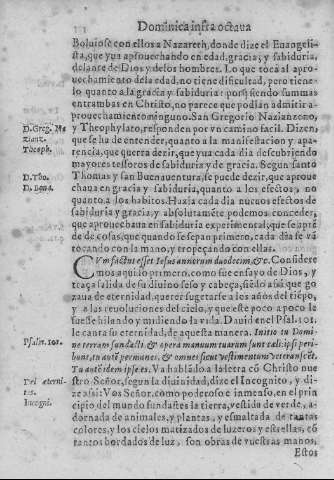 Dominica infra octaua
Boluiose con ellos a Nazareth, donde dize el Euangelista,
que yua aprouechando en edad, gracia, y sabiduria,
delante de Dios y de los hombres. Lo que toca al aprouechamiento
de la edad, no tiene dificultad, pero tiene
lo quanto a la gracia y sabiduria: porq̃ siendo summas
entrambas en Christo, no parece que podian admitir aprouechamiento
ninguno. San Gregorio Nazianzeno,
D.Greg. Na
y Theophylato, responden por vn camino facil. Dizen,
zianz.
que se ha de entender, quanto a la manifestacion y aparencia,
Theoph.
que querra dezir, que yua cada dia descubriendo
mayores tesoros de sabiduria y de gracia. Segun santo
D.Tho.
Thomas y san Buenauentura, se puede dezir, que aprouechaua
D. Bona.
en gracia y sabiduria, quanto a los efectos, no
quanto a los habitos. Hazia cada dia nueuos efectos de
sabiduria y gracia: y absolutamẽte podemos conceder,
que aprouechaua en sabiduria experimental, que se aprẽ
de de cosas, que quando se sepan primero, cada dia se vã
tocando con la mano, y tropeçando con ellas.
CVm factus esset Iesus annorum duodecim, &c. Consideremos
aqui lo primero, como fue ensayo de Dios, y
traça salida de su diuino seso y cabeça, siẽdo assi que gozaua
de eternidad, querer sugetarse a los años del tiẽpo,
y a las reboluciones del cielo, y que este poco a poco le
fuesse hilando y midiendo la vida. Dauid en el Psal. 101.
le canta su eternidad, de aquesta manera. Initio tu Domine
Psalm. 101.
terram fundasti: & opera manuum tuarum sunt cæli: ipsi peribunt,
tu autẽ permanes: & omnes sicut vestimentum veterascẽt.
Tu autẽ idem ipse es. Va hablãdo a la letra cõ Christo nuestro
Del eterni-
Señor, segun la diuinidad, dize el Incognito, y dize
tas.
assi: Vos Señor, como poderoso e inmenso, en el principio
Incogni.
del mundo fundastes la tierra, vestida de verde, adornada
de animales, y plantas, y esmaltada de tantas
colores, y los cielos matizados de luzeros y estrellas, cõ
tantos bordados de luz, son obras de vuestras manos,
Estos